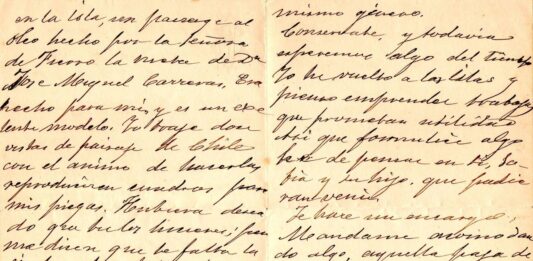 en la isla, un paisage al
oleo hecho por la señora
de Fierro la nieta de Dn
Jose Miguel Carrera. Era
hecho para mi, y es un exce
lente modelo. Yo traje doce
vistas de paisaje de Chile
con el animo de hacerlas
reproducir en cuadros para
mis piezas. Hubiera desea
do que tu los hicieras; pero
me dicen que te falta la
mismo género.
Conservate, y todavia
esperemos algo del tiempo
Yo he vuelto a las Islas y
pienso emprender trabajos
que prometan utilidad
Asi que formalice algo
he de pensar en ti, So
fia y tu hijo, que podria
van venir.
Te hare un encargo,
Mandame arvinando
do algo, aquella paja de